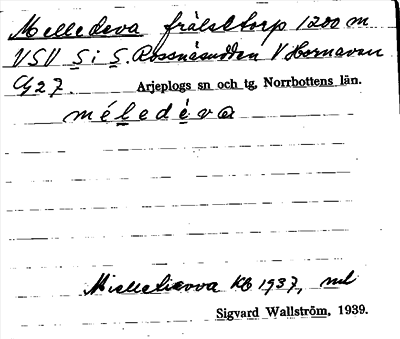 Melledeva frälsetorp 1200 m
VSV S i S. Rossnäsudden V Hornavan
G27. Arjeplogs sn och tg, Norrbottens län.
méledèva
Mielletievva KB 1937, ml
Sigvard Wallström, 1939.